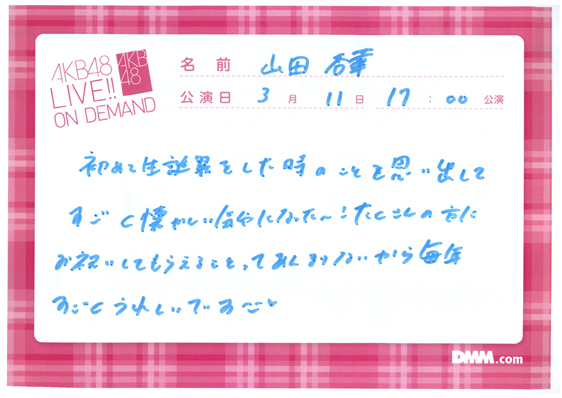 AKB48
LIVE!!
ON DEMAND
AKB
48
名前 山田 杏華
公演日 3月11日 17:00 公演
初めて生誕祭をした時のことを思い出して
すごく懐かしい気分になった〜!たくさんの方に
お祝いしてもらえることってあんまりないから毎年
すごくうれしいです
DMM.com